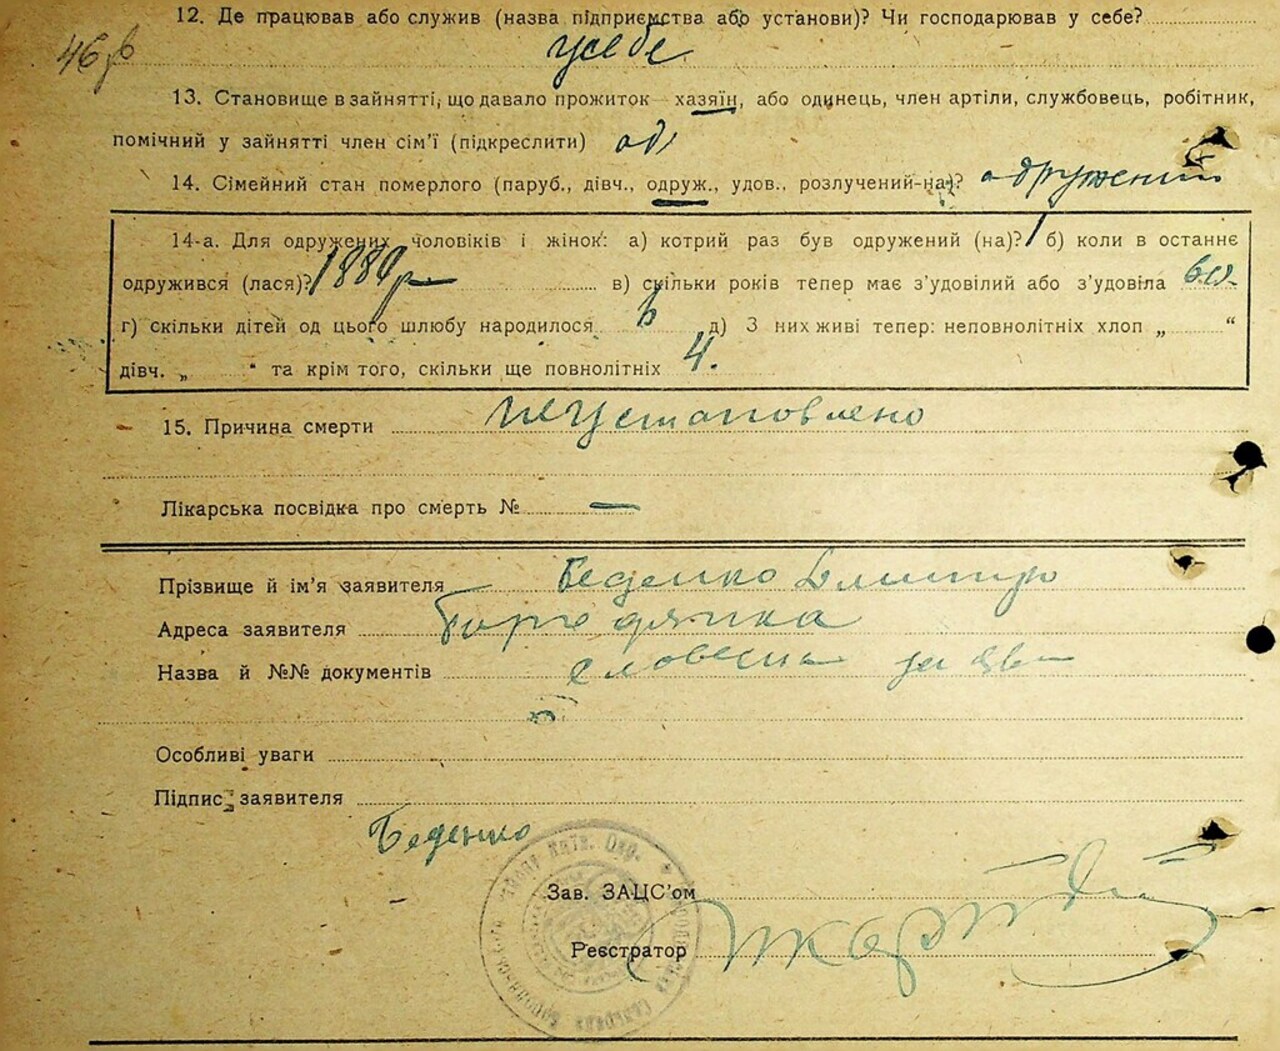 12. Де працював або служив (назва підприємства або установи)? Чи господарював у себе?
46
у себе
13. Становище в зайнятті, що давало прожиток — хазяїн, або одинець, член артіли, службовець, робітник,
помічний у зайнятті член сім'ї (підкреслити) од
14. Сімейний стан померлого (паруб., дівч., одруж., удов., розлучений-на)? одружений
14-а. Для одружених чоловіків і жінок: а) котрий раз був одружений (на)? 1 б) коли в останнє
одружився (лася)? 1889 р в) скільки років тепер має з'удовілий або з'удовіла
г) скільки дітей од цього шлюбу народилося д) З них живі тепер: неповнолітніх хлоп „ “
дівч. „ “ та крім того, скільки ще повнолітніх 4.
15. Причина смерти неустановлено
Лікарська посвідка про смерть № —
Прізвище й ім'я заявителя Беденко Дмитро
Адреса заявителя Бородянка
Назва й №№ документів словесна заява
Особливі уваги
Підпис заявителя
Беденко
Зав. ЗАЦС'ом
Реєстратор